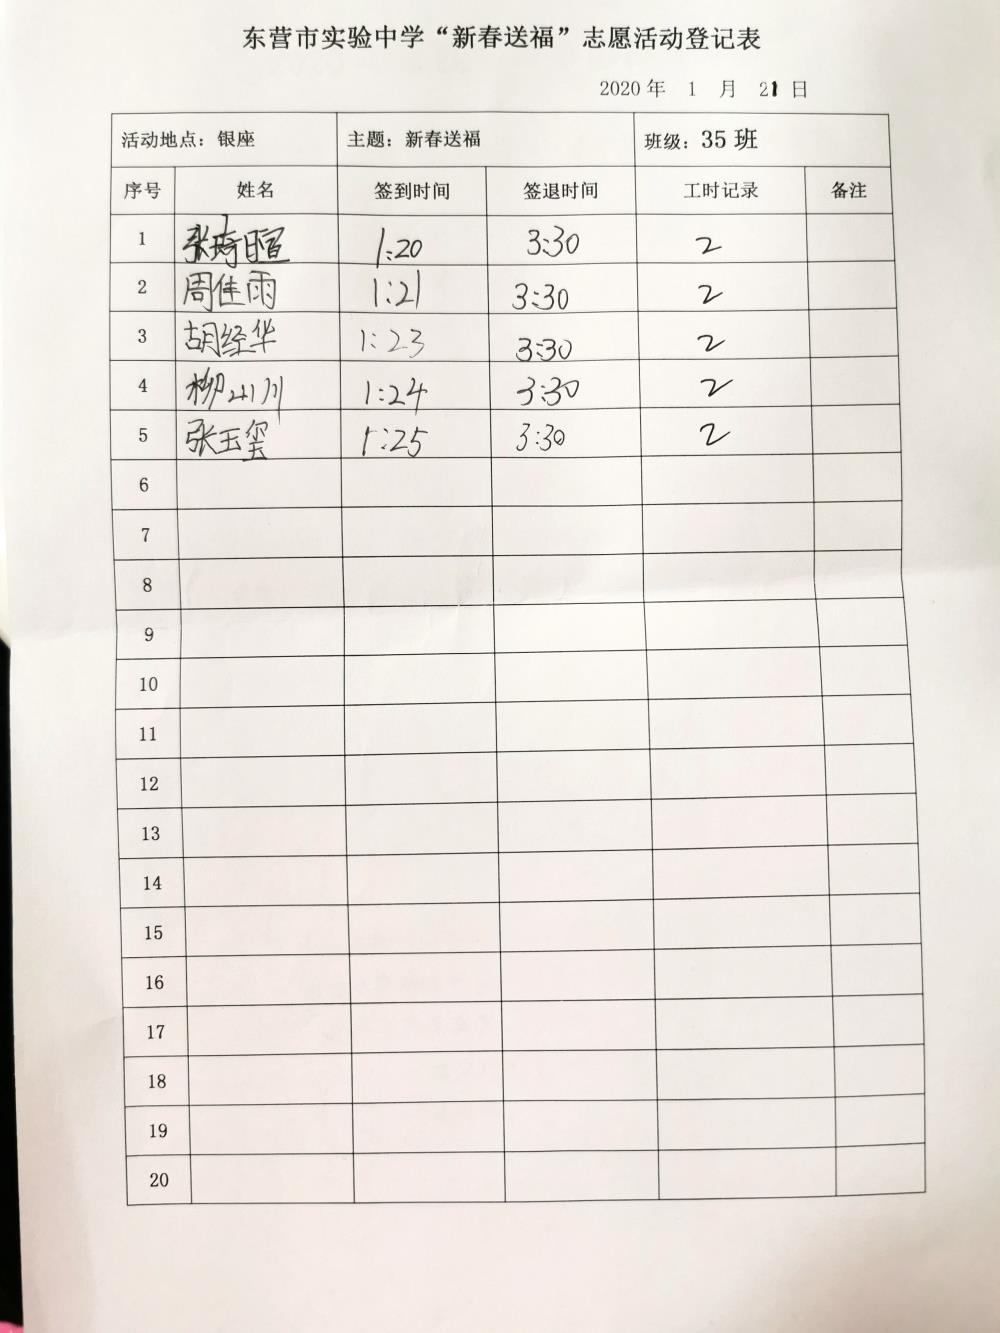 东营市实验中学“新春送福”志愿活动登记表
2020 年 1 月 21 日
活动地点：银座 主题：新春送福 班级：35 班
序号 姓名 签到时间 签退时间 工时记录 备注
1 张琦暄 1:20 3:30 2
2 周佳雨 1:21 3:30 2
3 胡经华 1:23 3:30 2
4 柳小川 1:24 3:30 2
5 张玉玺 1:25 3:30 2
6
7
8
9
10
11
12
13
14
15
16
17
18
19
20